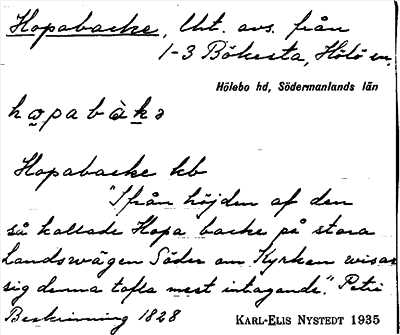 Hopabacke, lht. avs. från
1-3 Bökesta, Hölö sn,
Hölebo hd, Södermanlands län
hopabàkə
Hopabacke kb
"Ifrån höjden af den
så kallade Hopa backe på stora
Landswägen Söder om Kyrkan wisar
sig denna tafla mest intagande." Petri
Beskrivning 1828
KARL-ELIS NYSTEDT 1935